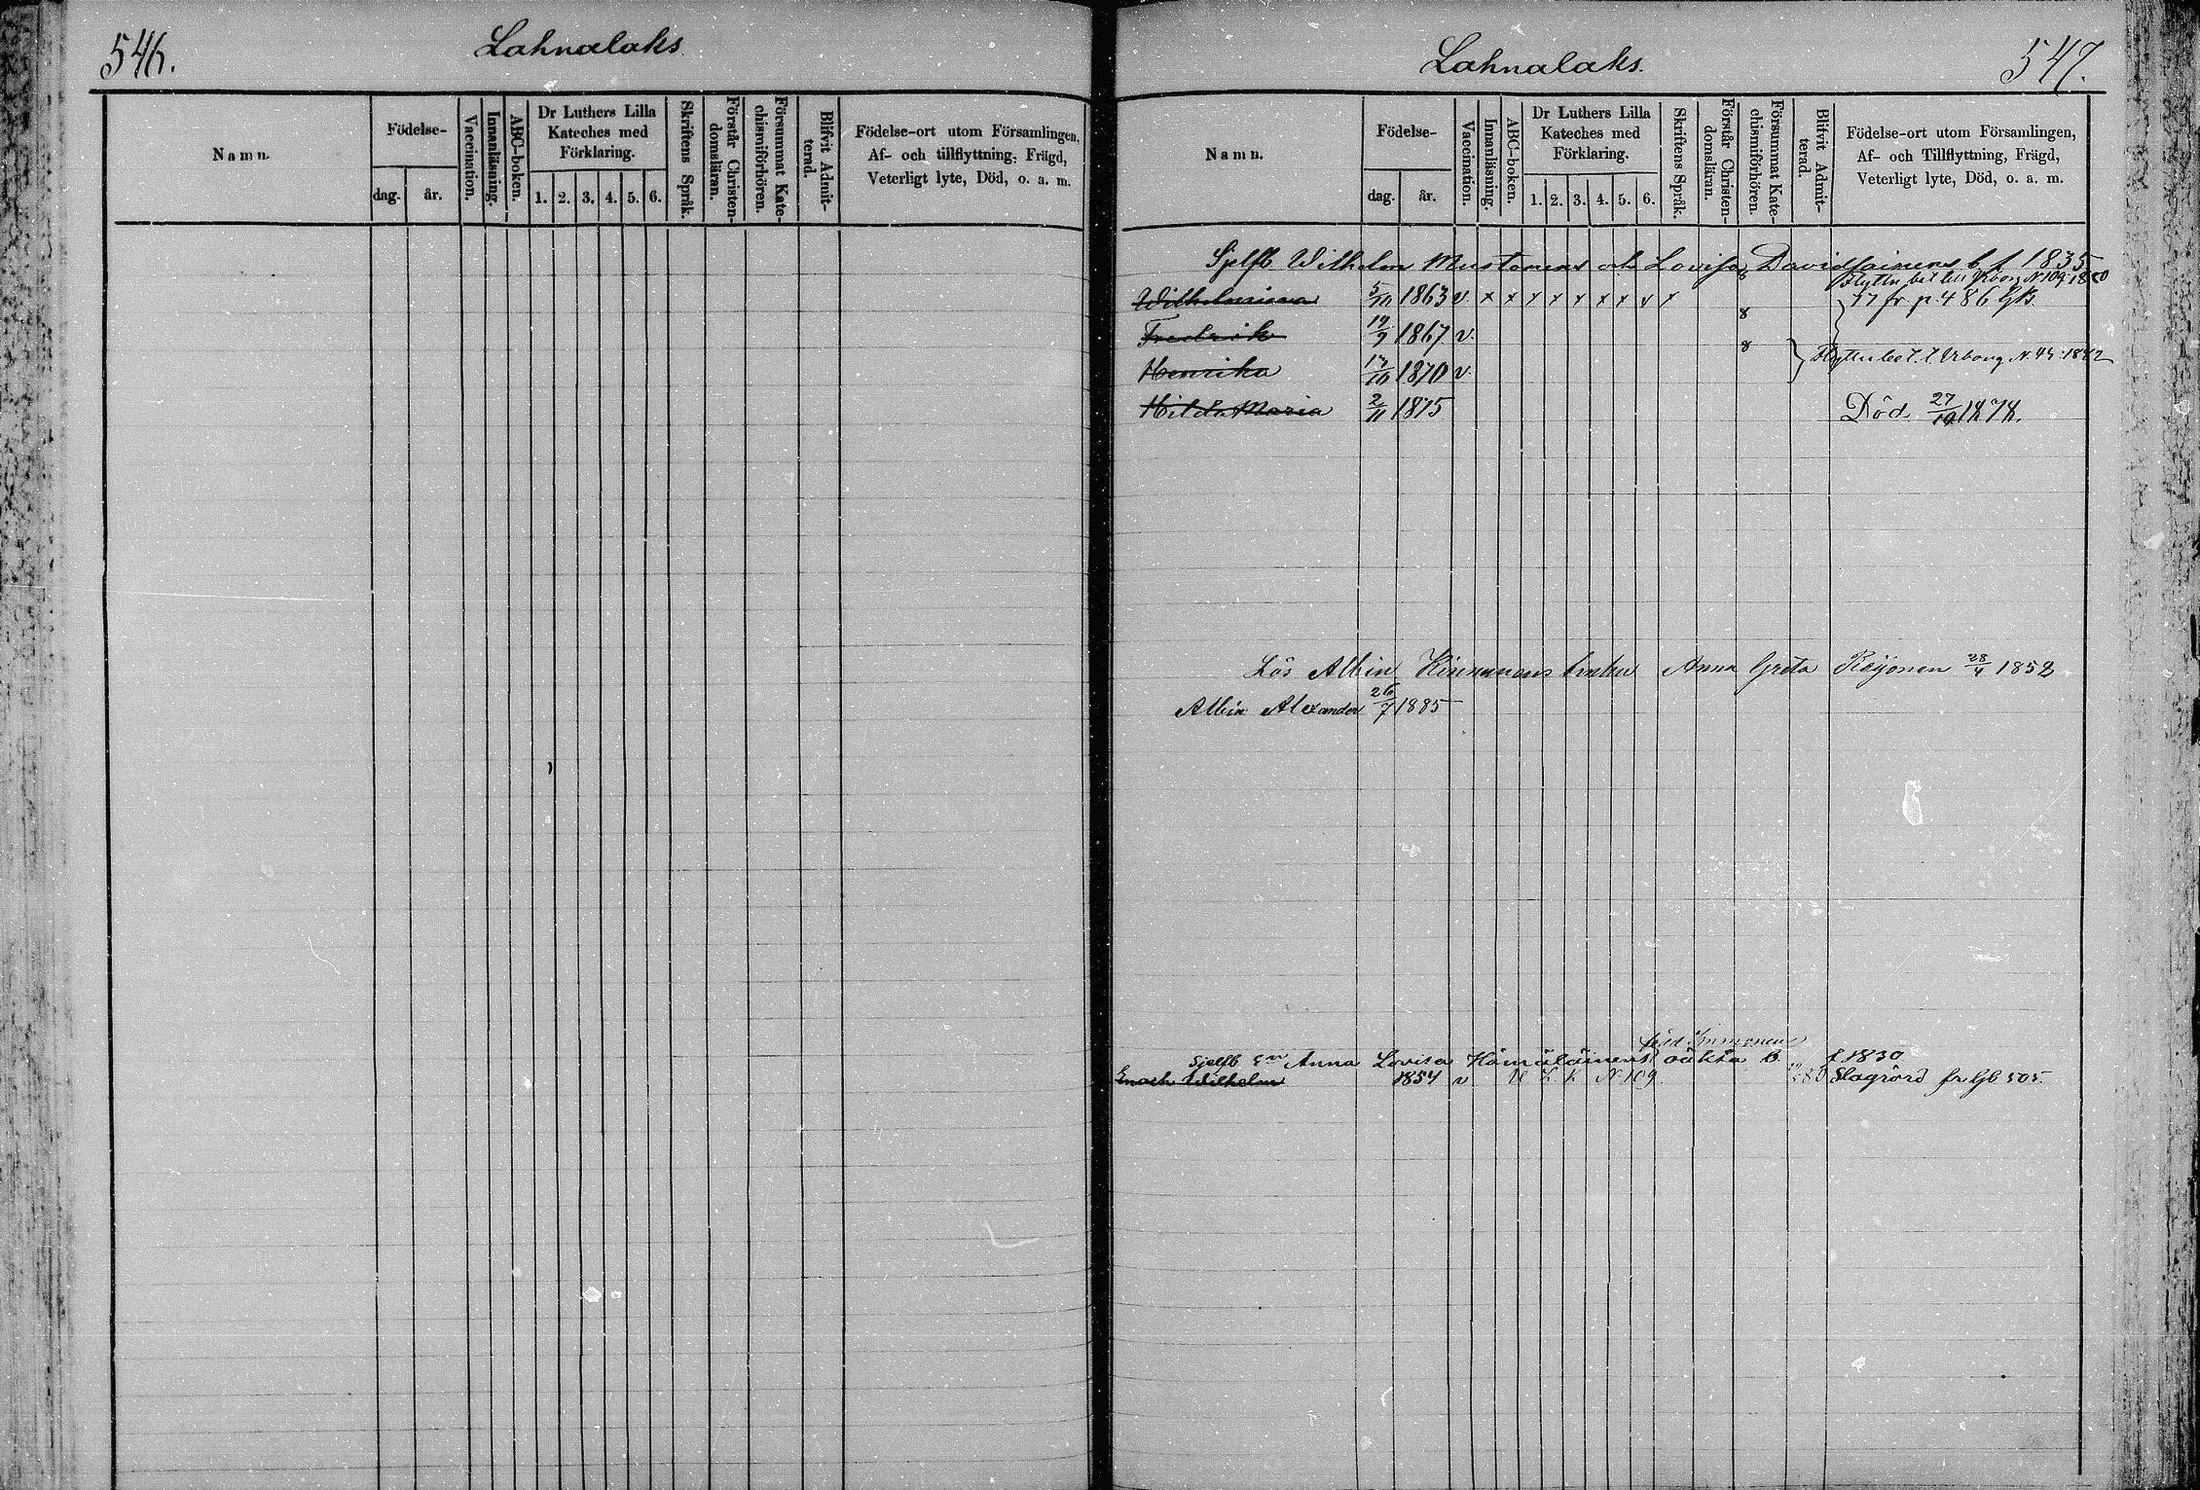 546.
Lahnalaks
Namn.
Födelse-
dag.
år.
Vaccination.
Innanläsning.
ABC-boken.
Dr Luthers Lilla
Kateches med
Förklaring.
1. 2. 3. 4. 5. 6.
Skriftens Språk.
Förstår Christen-
domsläran.
Försummat Kate-
chismiförhören.
Blifvit Admit-
terad.
Födelse-ort utom Församlingen,
Af- och tillflyttning, Frägd,
Veterligt lyte, Död, o. a. m.
Lahnalaks.
547.
Namn.
Födelse-
dag.
år.
Vaccination.
Innanläsning.
ABC-boken.
Dr Luthers Lilla
Kateches med
Förklaring.
1. 2. 3. 4. 5. 6.
Skriftens Språk.
Förstår Christen-
domsläran.
Försummat Kate-
chismiförhören.
Blifvit Admit-
terad.
Födelse-ort utom Församlingen,
Af- och Tillflyttning, Frägd,
Veterligt lyte, Död, o. a. m.
Sjelfb Wilhelm Mustonens och Lovisa Davidsainens b. f 1835
Flyttn bet till Wiborg N 109 1880
Wilhelmina 5/10 1863 v. x x x x x x x v x 77 fr p. 486 Gb
Fredrik 19/9 1867 v.
Henrika 17/10 1870 v. Flyttn bet. t Wiborg N. 44 1882
Hilda Maria 2/11 1875 Död 27/10 1878.
Lös Albin Kinnunens hustru Anna Greta Reijonen 28/4 1852
Albin Alexander 26/7 1885
född Immonen
Sjelfb Anna Lovisa Hämäläinens oäkta b f 1830
Enoch Wilhelm 1854 v N 109 80 fr Gb 505.